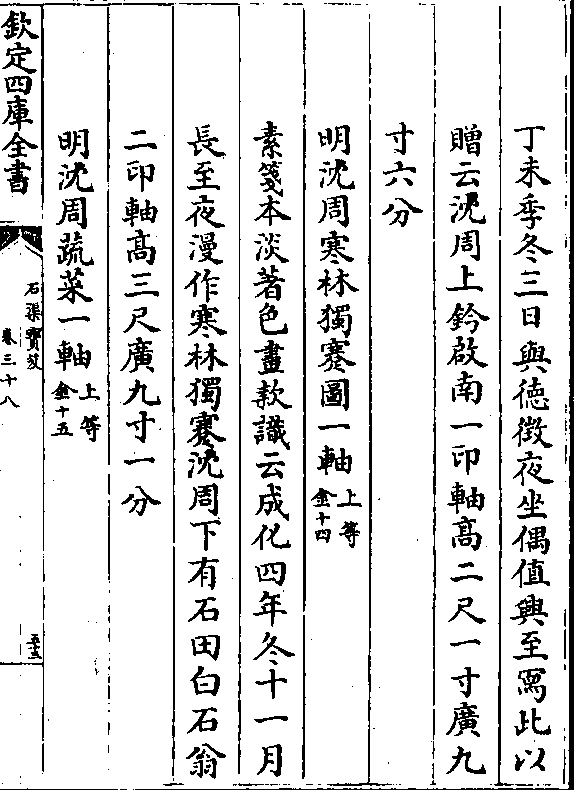 丁未季冬三日與徳徴夜坐偶值興至寫此以
贈云沈周上鈐啟南一印軸髙二尺一寸廣九
寸六分
明沈周寒林獨蹇圖一軸 上等 金十四
素箋本淡著色畫款識云成化四年冬十一月
長至夜漫作寒林獨蹇沈周下有石田白石翁
二印軸髙三尺廣九寸一分
明沈周蔬菜一軸 上等 金十五
欽定四庫全書
石渠寳笈
卷三十八